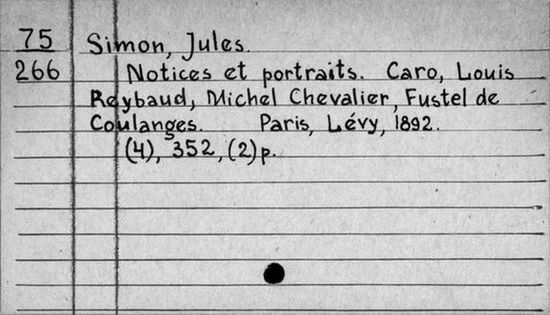 75 Simon, Jules.
266 Notices et portraits. Caro, Louis
Reybaud, Michel Chevalier, Fustel de
Coulanges. Paris, Lévy, 1892.
(4), 352, (2) p.